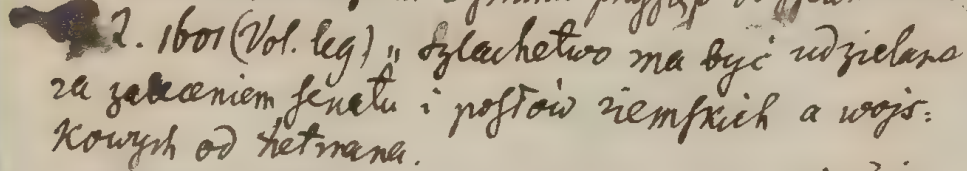 2. 1601 (Vol. leg) „ Szlachetwo ma być udzielane
za zaleceniem senatu i posłów ziemskich a wojs:
kowych od hetmana.